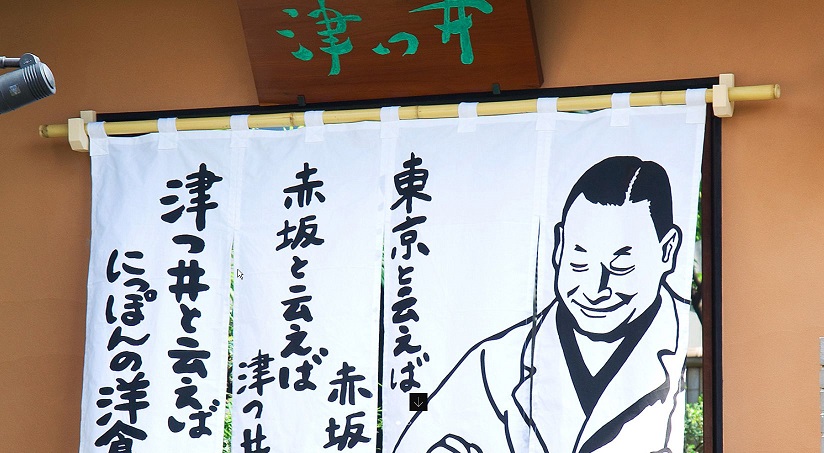 津つ井
東京と云えば
赤坂
赤坂と云えば
津つ井
津つ井と云えば
にっぽんの洋食